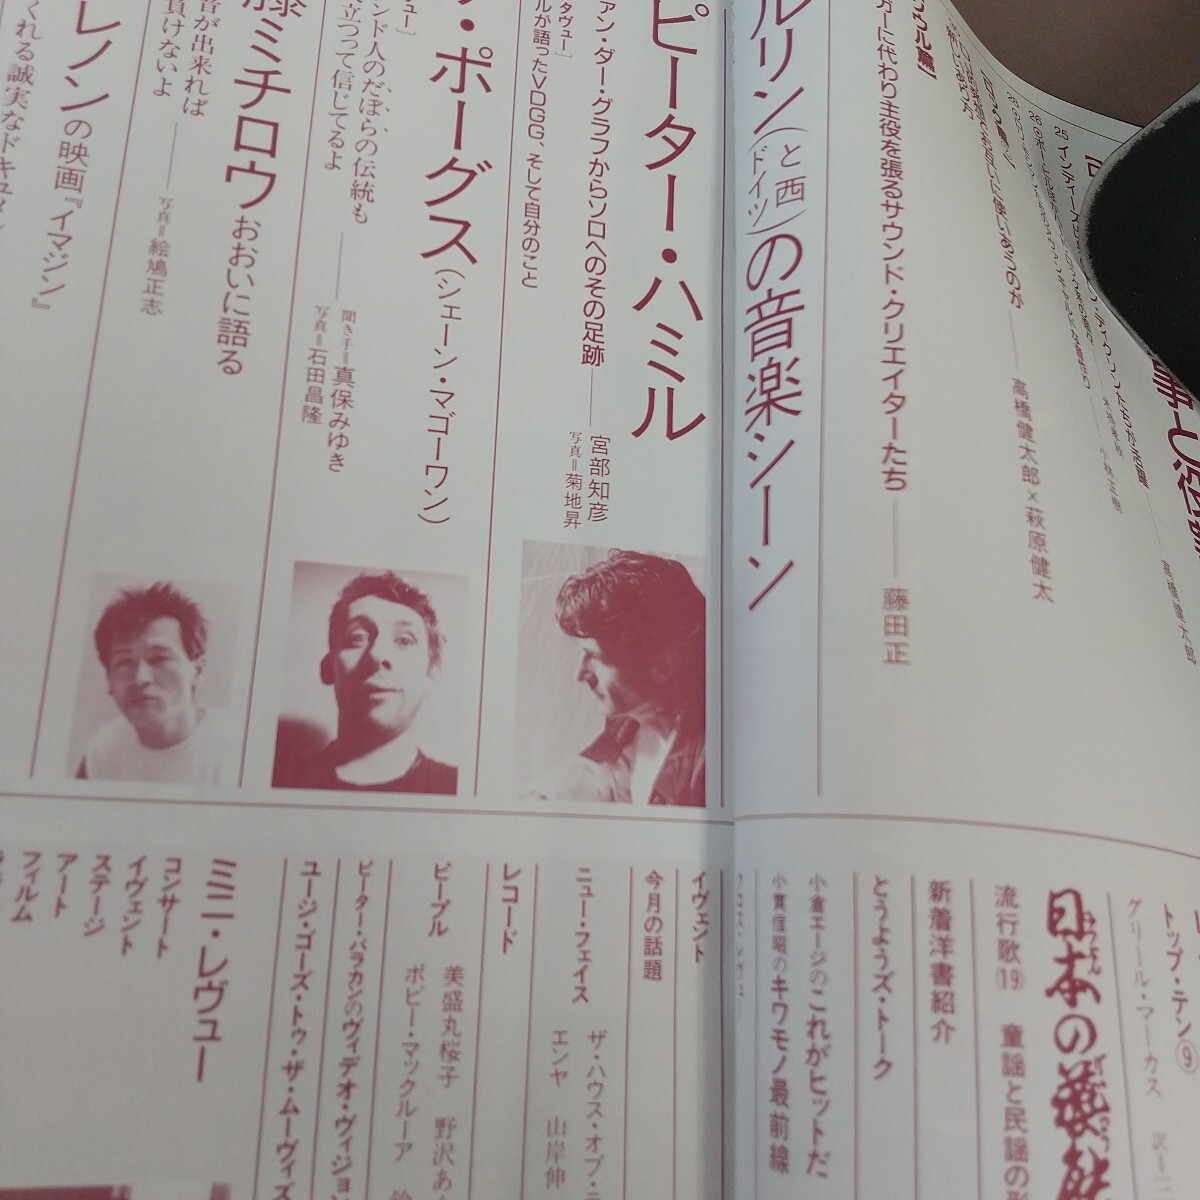 高橋健太郎
高橋健太郎×萩原健太
ガーに代わり主役を張るサウンド・クリエイターたち
藤田正
ルリン(と西ドイツ)の音楽シーン
ピーター・ハミル
ァン・ダー・グラフからソロへのその足跡
宮部知彦
写真=菊地昇
タヴュー]
ルが語ったVDGG、そして自分のこと
・ポーグス(シェーン・マゴーワン)
ュー]
シド人のだぼらの伝統も
立つって信じてるよ
聞き手=真保みゆき
写真=石田昌隆
藤ミチロウおおいに語る
音が出来れば
負けないよ
写真=絵鳩正志
レノンの映画『イマジン』
くれる誠実なドキュメン
トップ・テン⑨
グリール・マーカス
日本の
流行歌(19) 童謡と民謡の
新着洋書紹介
とうようズ・トーク
小倉エージのこれがヒットだ
小貫信昭のキワモノ最前線
イヴェント
今月の話題
ニュー・フェイス
ザ・ハウス・オブ・
エンヤ 山岸伸
レコード
ピープル
美盛丸桜子 野沢あ
ボビー・マックルーア
ピーター・バラカンのヴィデオ・ヴィジョ
ユージ・ゴーズ・トゥ・ザ・ムーヴィズ
ミニ・レヴュー
コンサート
イヴェント
ステージ
アート
フィルム